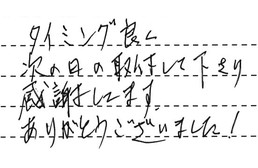 タイミング良く
次の日の取りまして下さり
感謝してます。
ありがとうございました!